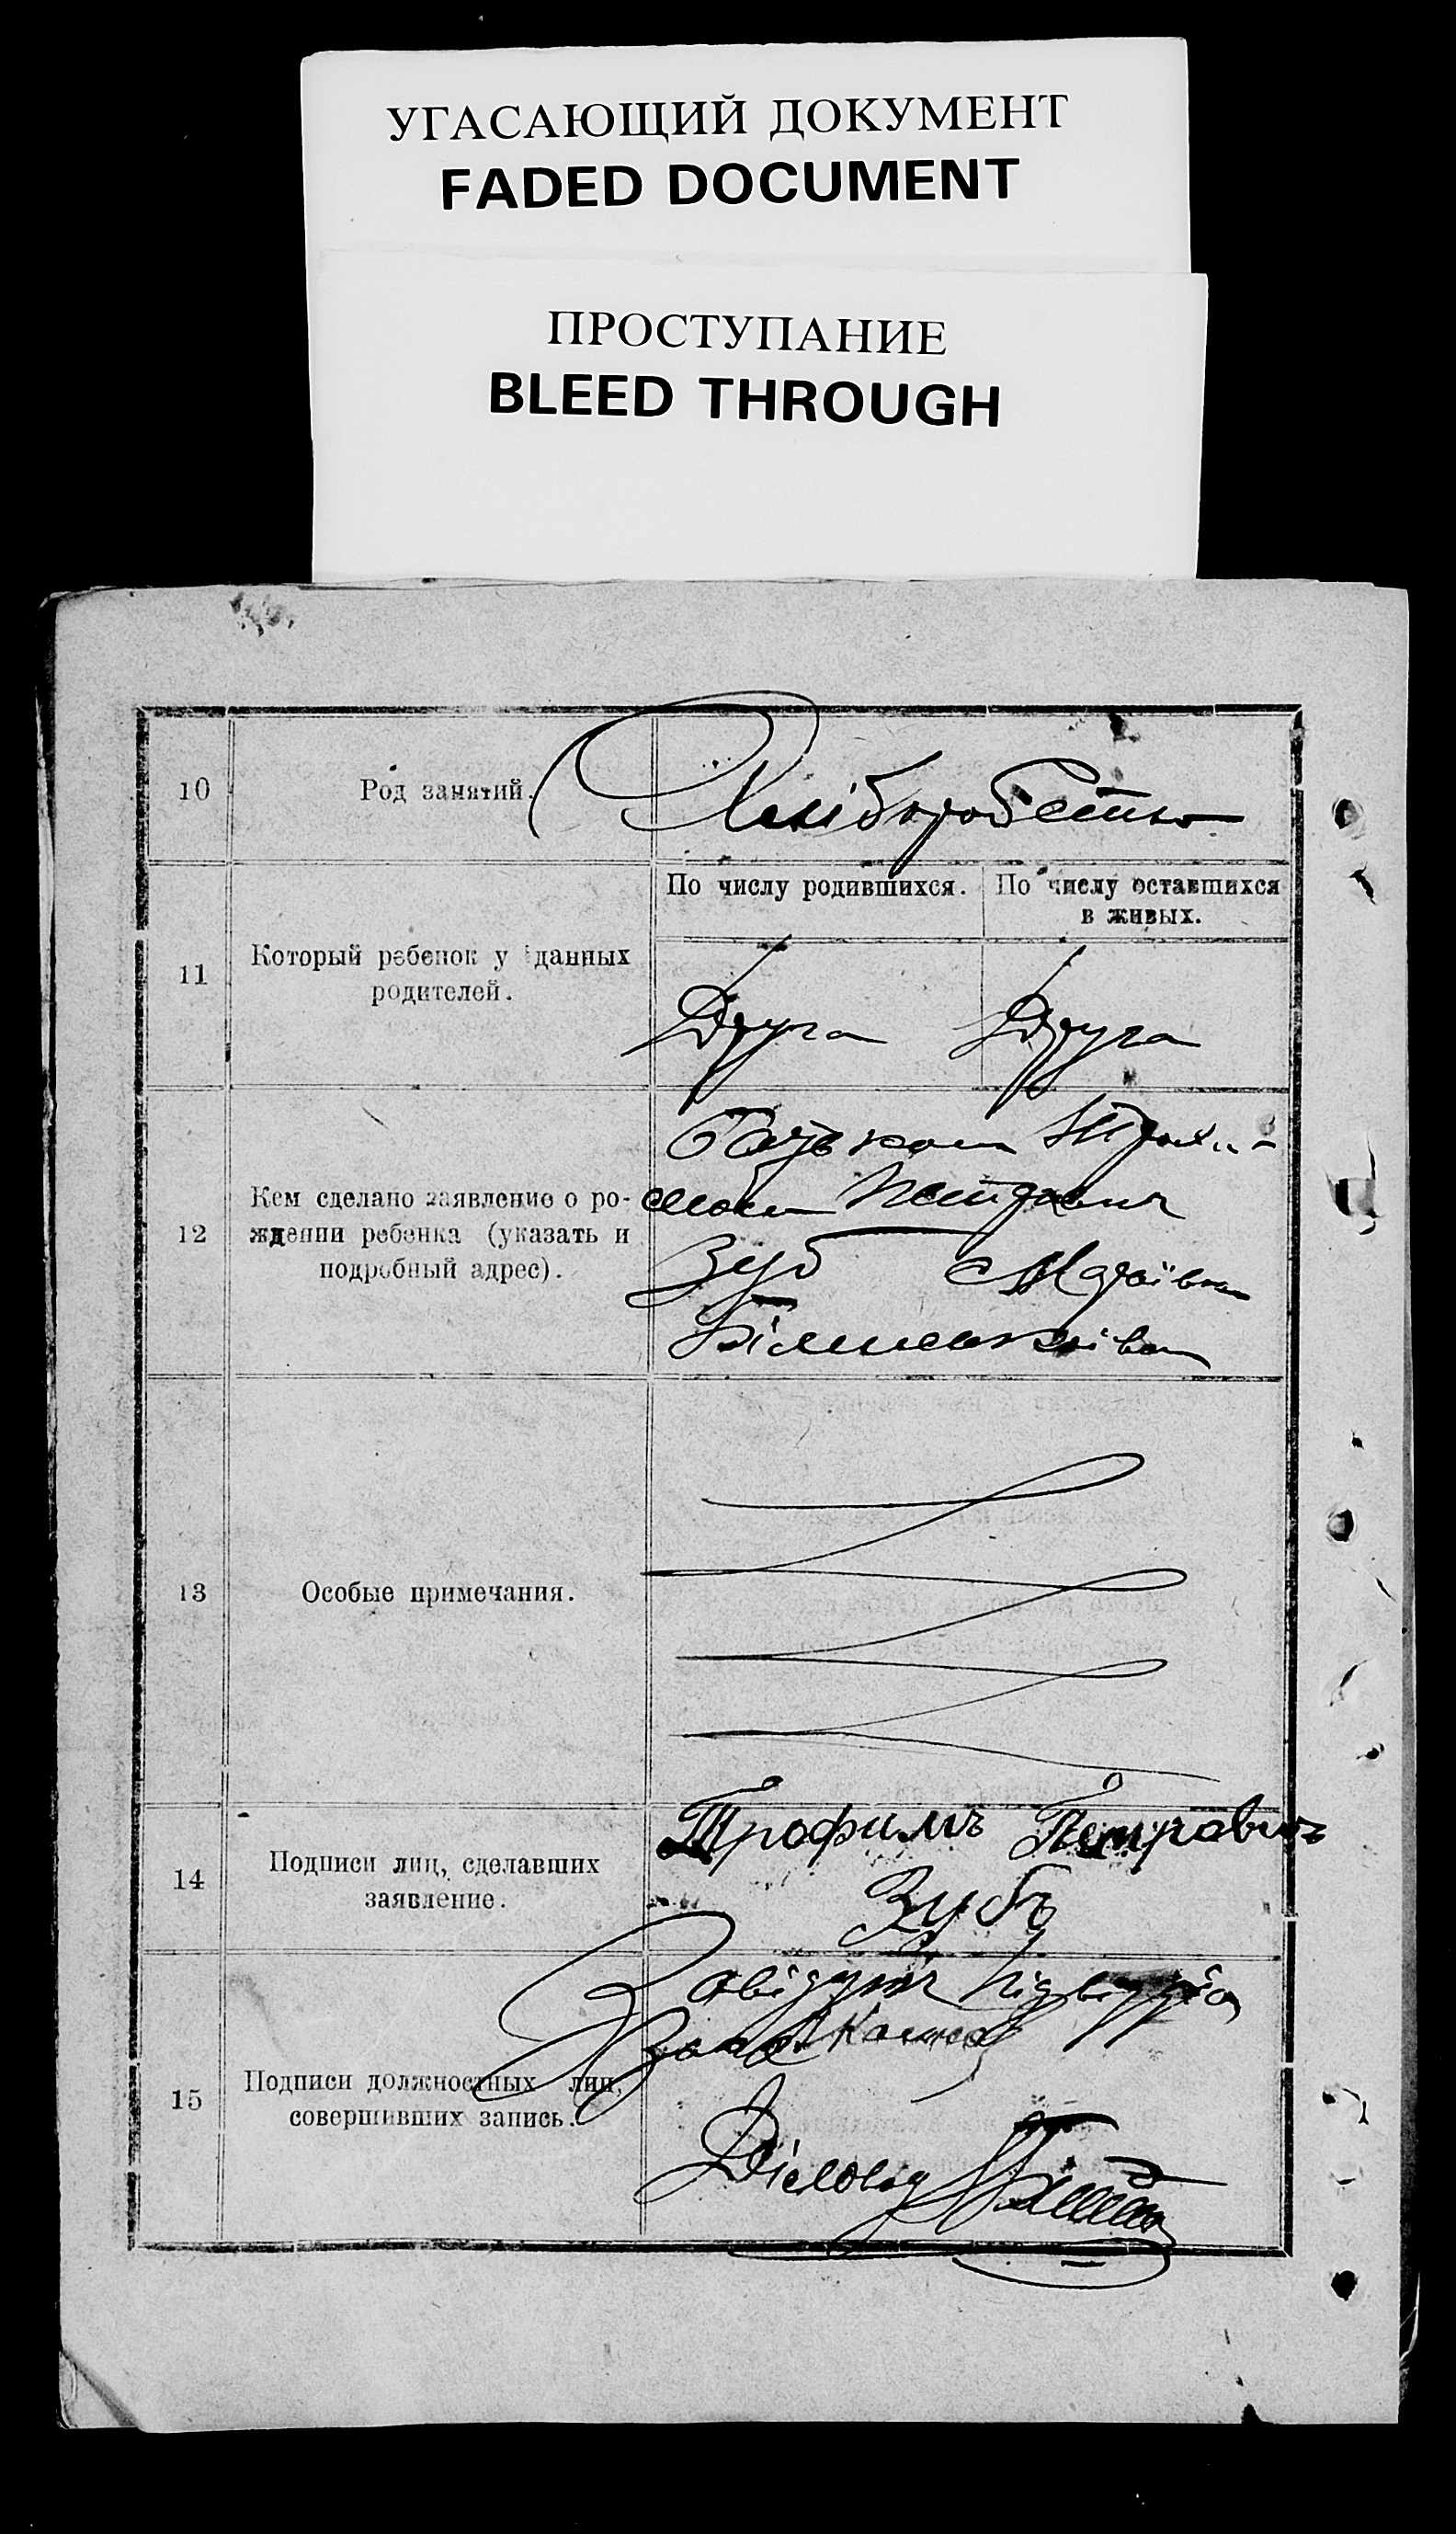 УГАСАЮЩИЙ ДОКУМЕНТ
FADED DOCUMENT
ПРОСТУПАНИЕ
BLEED THROUGH
10 Род занятий. Хліборобство
По числу родившихся. По числу оставшихся
в живых.
11 Который ребенок у данных
родителей.
Друга Друга
Батьком Трохи-
12 Кем сделано заявление о ро-
ждении ребенка (указать и
подробный адрес).
мовим Петрович
Зуб
13 Особые примечания.
14 Подписи лиц, сделавших
заявление.
Трофимъ Петровичъ
Зубъ
15 Подписи должностных лиц,
совершивших запись.
Завідуючий
Діловод